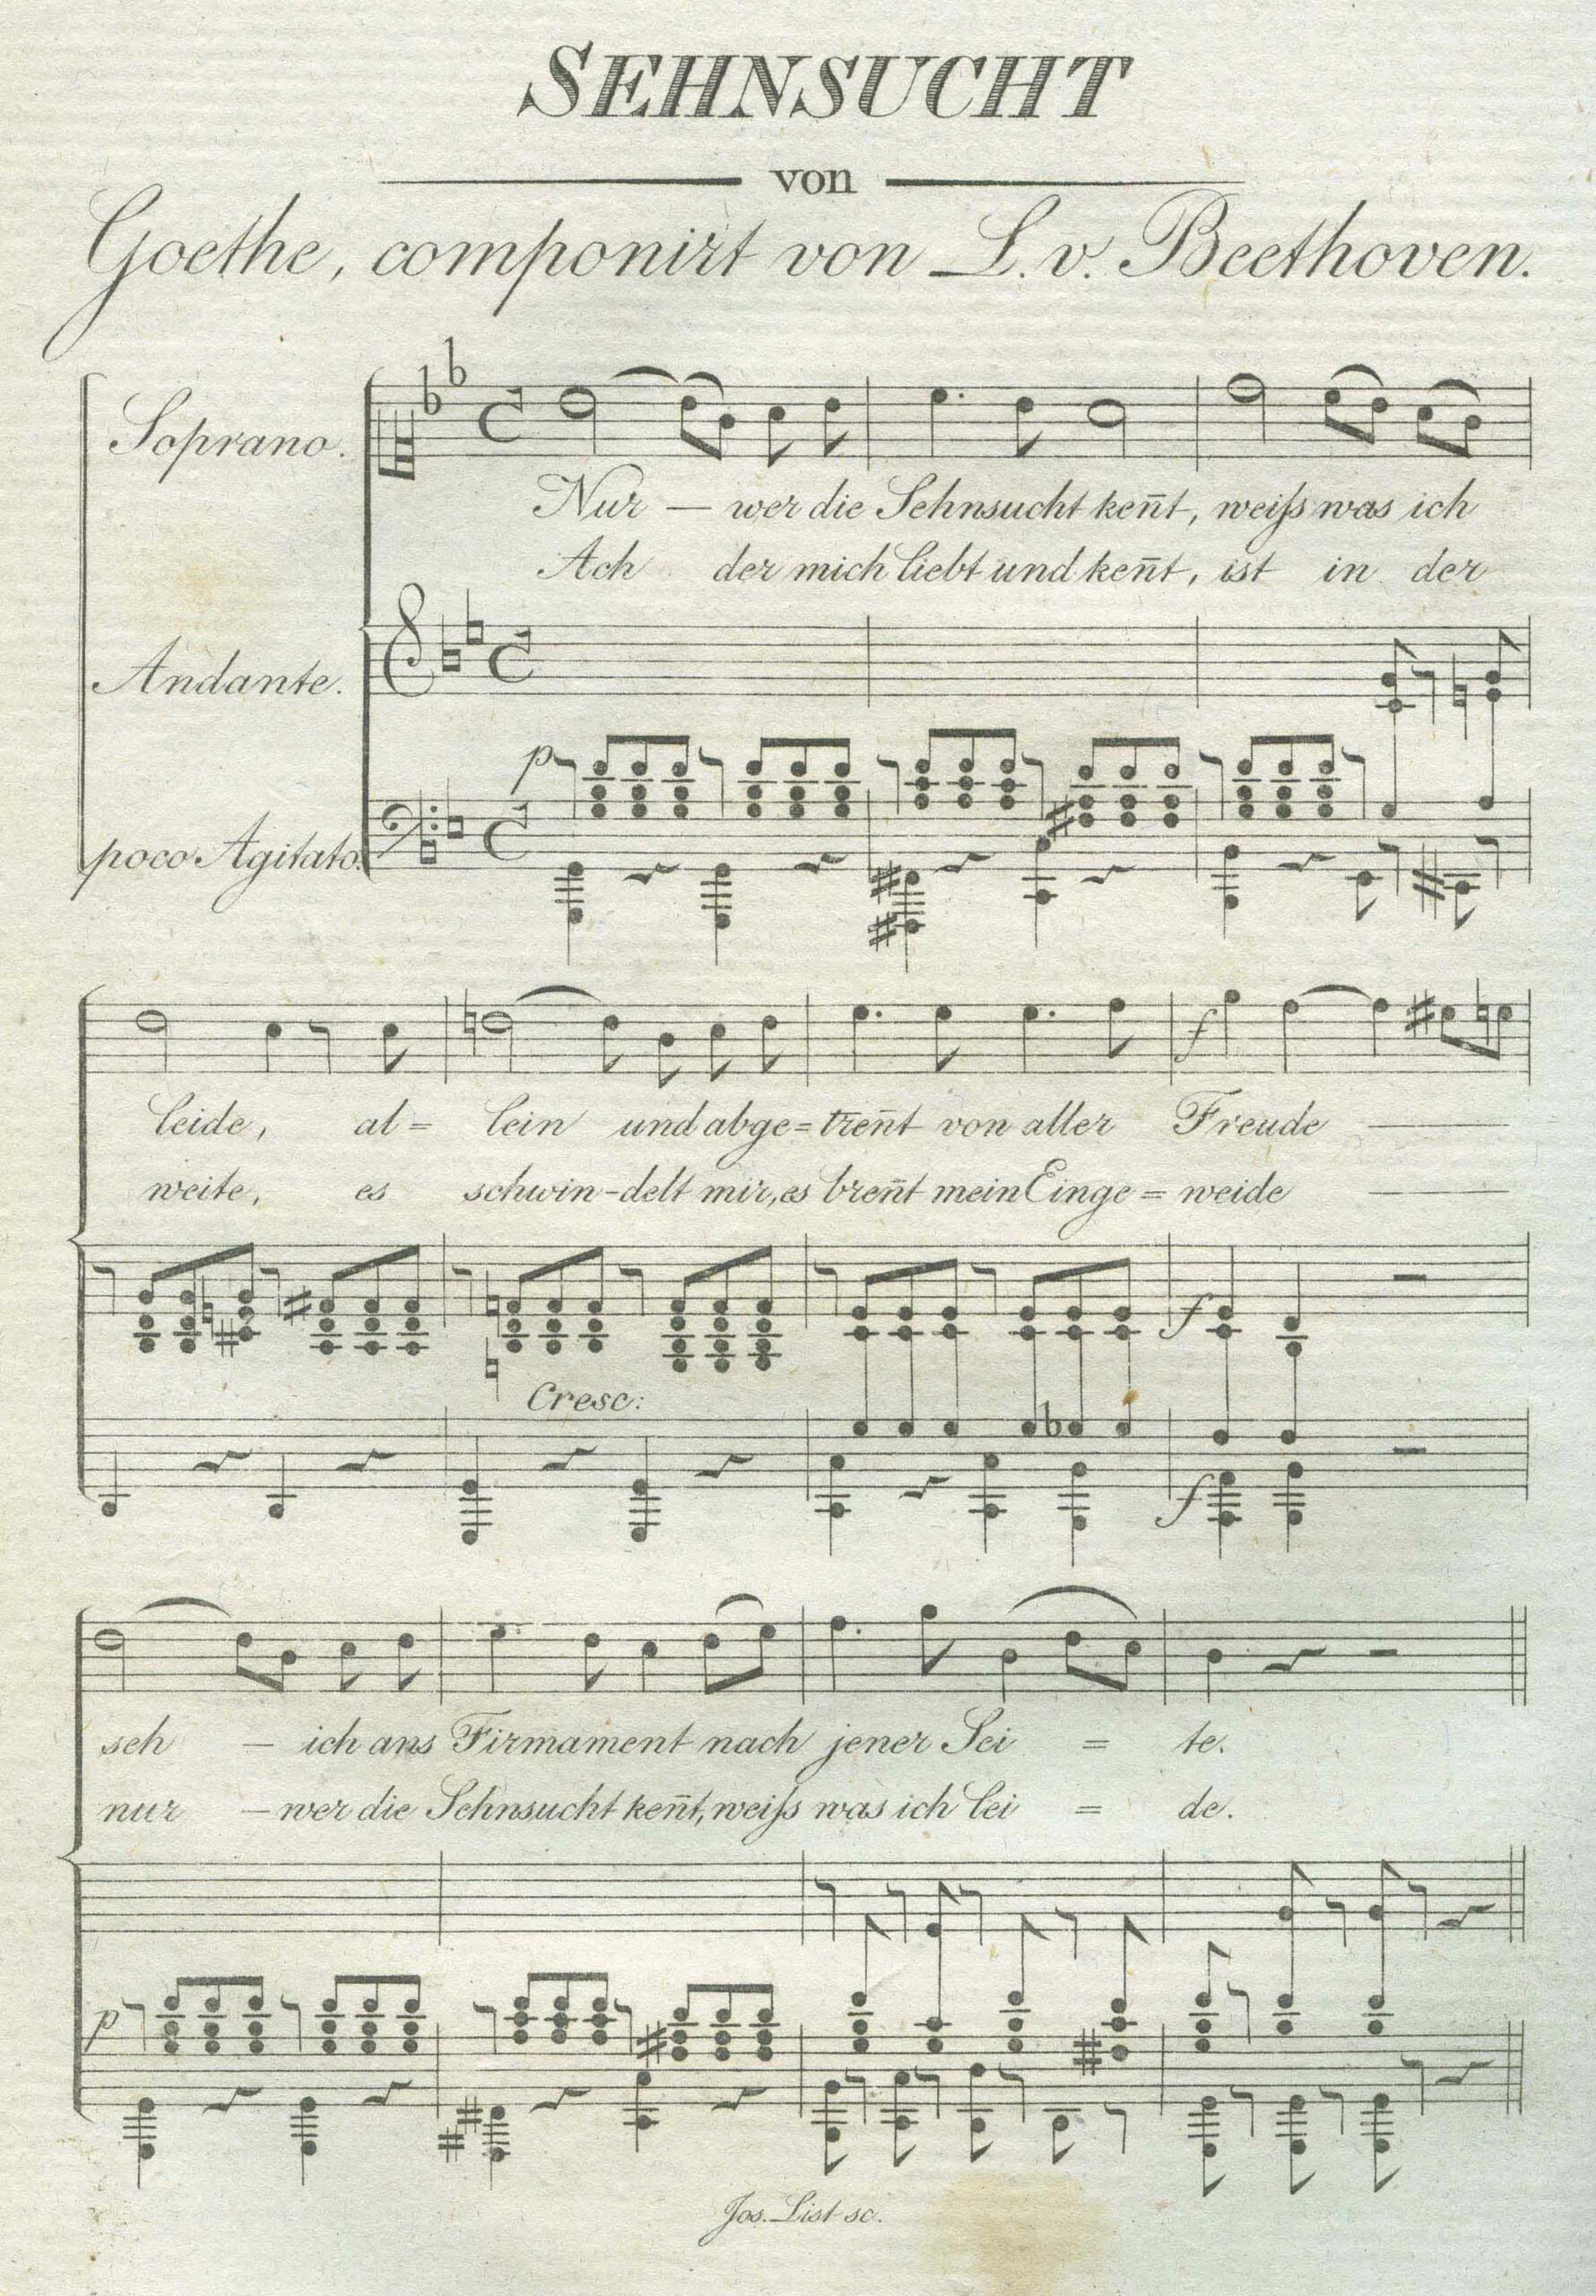 SEHNSUCHT
von
Goethe, componirt von L. v. Beethoven.
Soprano.
Nur — wer die Sehnsucht keñt, weiſs was ich
Ach der mich liebt und keñt, ist in der
Andante.
p
poco Agitato.
leide, al= lein und abge=treñt von aller Freude —
weite, es schwin-delt mir, es breñt mein Einge=weide —
f
Cresc:
f
f
seh — ich ans Firmament nach jener Sei = te.
nur — wer die Sehnsucht keñt, weiſs was ich lei = de.
p
Jos. List sc.